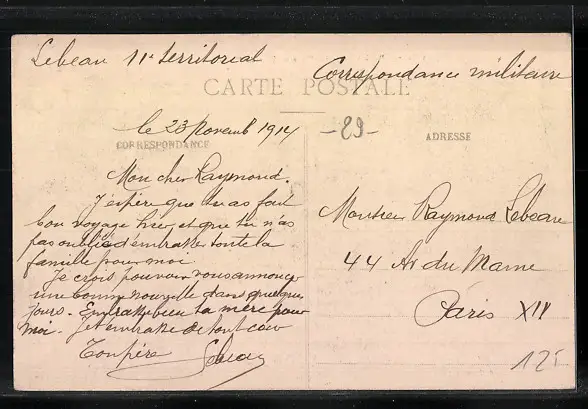 Lebeau 11e territorial
Correspondance militaire
CARTE POSTALE
le 23 Novemb 1914
-89-
CORRESPONDANCE
ADRESSE
Mon cher Raymond.
J'espère que tu as fait
bon voyage hier et que tu n'as
pas oublié d'embrasser toute la
famille pour moi
Je crois pouvoir vous annoncer
une bonne nouvelle dans quelques
jours. Embrasse bien ta mère pour
moi. Je t'embrasse de tout cœur
Ton père Lebeau
Monsieur Raymond Lebeau
44 Av du Maine
Paris XIV
125